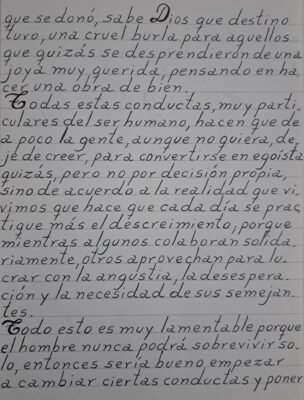 que se donó, sabe Dios que destino
tuvo, una cruel burla para aquellos
que quizás se desprendieron de una
joya muy querida, pensando en ha_
cer una obra de bien.
Todas estas conductas, muy parti_
culares del ser humano, hacen que de
a poco la gente, aunque no quiera, de_
je de creer, para convertirse en egoista
quizás, pero no por decisión propia,
sino de acuerdo a la realidad que vi_
vimos que hace que cada día se prac_
tique más el descreimiento, porque
mientras algunos colaboran solida_
riamente, otros aprovechan para lu_
crar con la angustia, la desespera_
ción y la necesidad de sus semejan_
tes.
Todo esto es muy lamentable porque
el hombre nunca podrá sobrevivir so_
lo, entonces sería bueno empezar
a cambiar ciertas conductas y poner